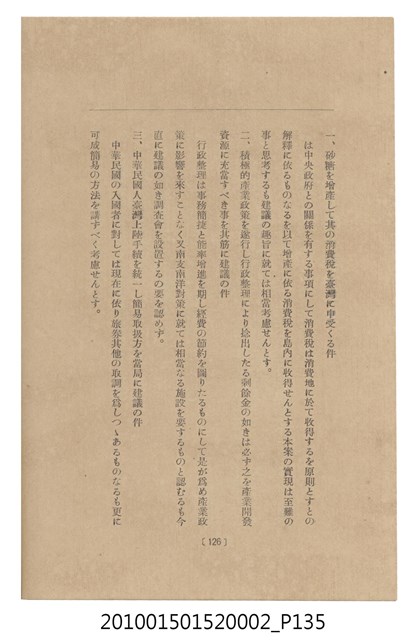 一、砂糖を增產して其の消費稅を臺灣に申受くる件
は中央政府との關係を有する事項にして消費稅は消費地に於て收得するを原則とすとの
解釋に依るものなるを以て增產に依る消費稅を島內に收得せんとする本案の實現は至難の
事と思考するも建議の趣旨に就ては相當考慮せんとす。
二、積極的產業政策を遂行し行政整理により捻出したる剩餘金の如きは必ず之を產業開發
資源に充當すべき事を其筋に建議の件
行政整理は事務簡捷と能率增進を期し經費の節約を圖りたるものにして是が爲め產業政
策に影響を來すことなく又南支南洋對策に就ては相當なる施設を要するものと認むるも今
直に建議の如き調査會を設置するの要を認めず。
三、中華民國人臺灣上陸手續を統一し簡易取扱方を當局に建議の件
中華民國の入國者に對しては現在に依り旅劵其他の取調を爲しつゝあるものなるも更に
可成簡易の方法を講ずべく考慮せんとす。
〔126〕
201001501520002_P135